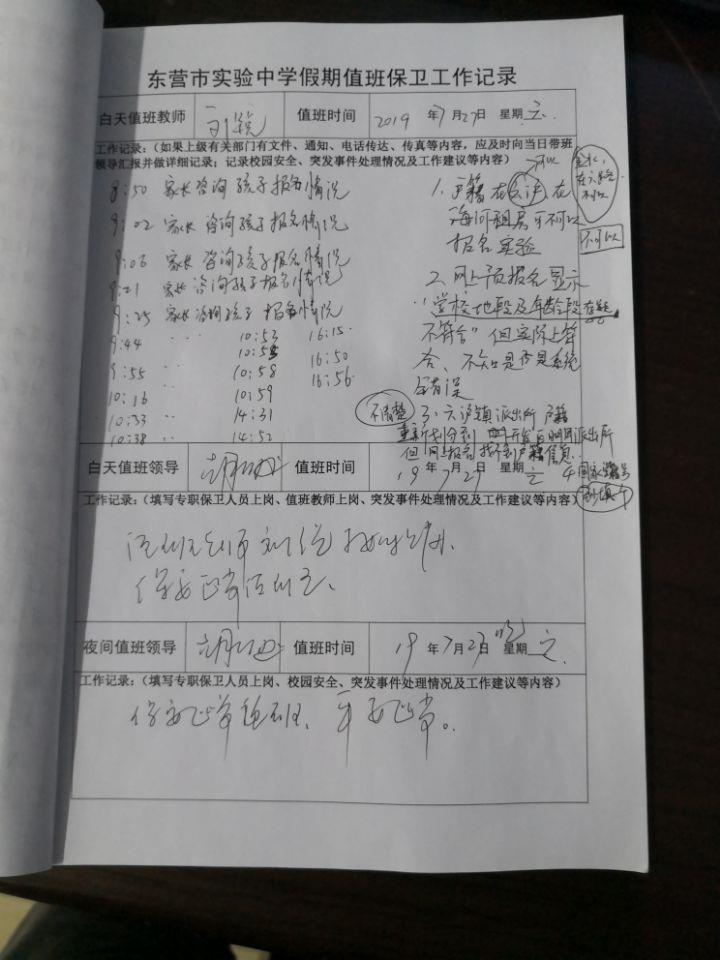 东营市实验中学假期值班保卫工作记录
白天值班教师 值班时间 2019 年 7 月 27 日 星期 六
工作记录:(如果上级有关部门有文件、通知、电话传达、传真等内容,应及时向当日带班
领导汇报并做详细记录;记录校园安全、突发事件处理情况及工作建议等内容)
8:50 家长咨询孩子报名情况
9:02 家长咨询孩子报名情况
9:06 家长咨询孩子报名情况
9:21 家长咨询孩子报名情况
9:25 家长咨询孩子报名情况
9:44 〃 10:53 16:15
10:55
9:55 〃 10:58 16:50
10:16 10:59 16:56
10:33 〃 14:31
10:38 〃 14:52
可以
1. 户籍在 在
租房可不可以
报名实验
不可以
2. 网上预报名显示
"学校地段及年龄段
不符合"但实际上符
合、不知是否是系统
错误
不清楚
3. 六户镇派出所户籍
重新划分到 开发区 派出所
但网上报名找不到户籍信息.
白天值班领导 值班时间 19 年 7 月 27 日 星期 六
工作记录:(填写专职保卫人员上岗、值班教师上岗、突发事件处理情况及工作建议等内容)
保安正常
夜间值班领导 值班时间 19 年 7 月 27 日 晚 星期 六
工作记录:(填写专职保卫人员上岗、校园安全、突发事件处理情况及工作建议等内容)
保安正常值班、平安正常。